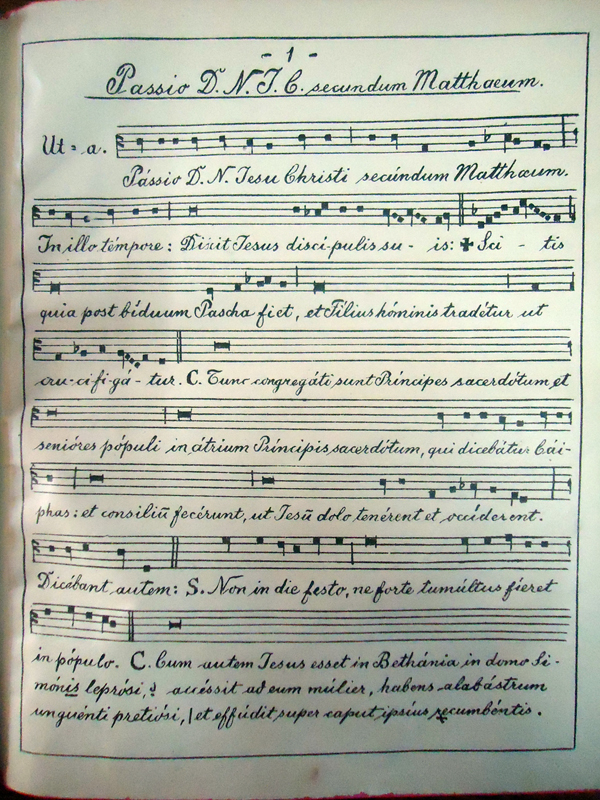 - 1 -
Passio D. N. J. C. secundum Matthaeum.
Ut = a.
Pássio D. N. Iesu Christi secúndum Matthæum.
In illo témpore: Dixit Iesus discí-pulis su - is: ✠ Sci - tis
quia post bíduum Pascha fiet, et Fílius hóminis tradétur ut
cru-ci fi-gá-tur. C. Tunc congregáti sunt Príncipes sacerdótum et
senióres pópuli in átrium Príncipis sacerdótum, qui dicebátur Cái-
phas: et consiliū fecérunt, ut Iesū dolo tenérent et occíderent.
Dicébant autem: S. Non in die festo, ne forte tumúltus fíeret
in pópulo. C. Cum autem Iesus esset in Bethánia in domo Si-
mónis leprósi, accéssit ad eum múlier, habens alabástrum
unguénti pretiósi, | et effúdit super caput ipsíus recumbéntis.